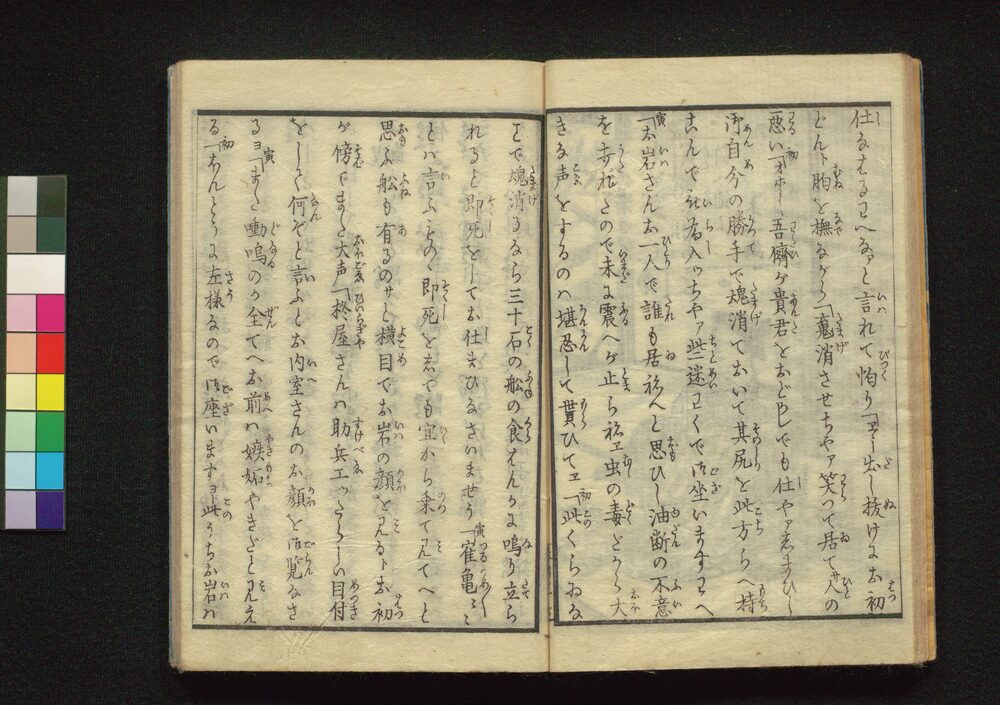 仕なはるワへなアと言れて恟り「ヱー出し抜けにお初
どんト胸を撫ながら「魂消させちやア笑つて居てサ人の
悪い「オホヽ吾儕が貴君をおどしでも仕やア志まひし
御自分の勝手で魂消ておいて其尻を此方らへ持
こんで被為入ツちやア此迷わくで御坐いますワへ
「お岩さんお一人で誰も居ねへと思ひし油断の不意
を打れたので未に震へが止らねヱ虫の毒だから大
きな声をするのハ堪忍して貰ひてヱ「此くらゐな
ことで魂消るなら三十石の船の食らはんかに鳴り立ら
れると即死をしてお仕まひなさいませう「寉亀〳〵
とハ言ふものゝ即死を志ても宜から乗て見てへと
思ふ船も有るのサと横目でお岩の顔を見るトお初
が傍でまた大声「柊屋さんハ助兵エツたらしい目付
をしく何ぞと言ふとお内室さんのお顔を御覧なさ
るヨ「また嘶鳴のか全てへお前ハ嫉妬やきだと見え
る「ほんとうに左様なので御座いますヨ此うちお岩ハ